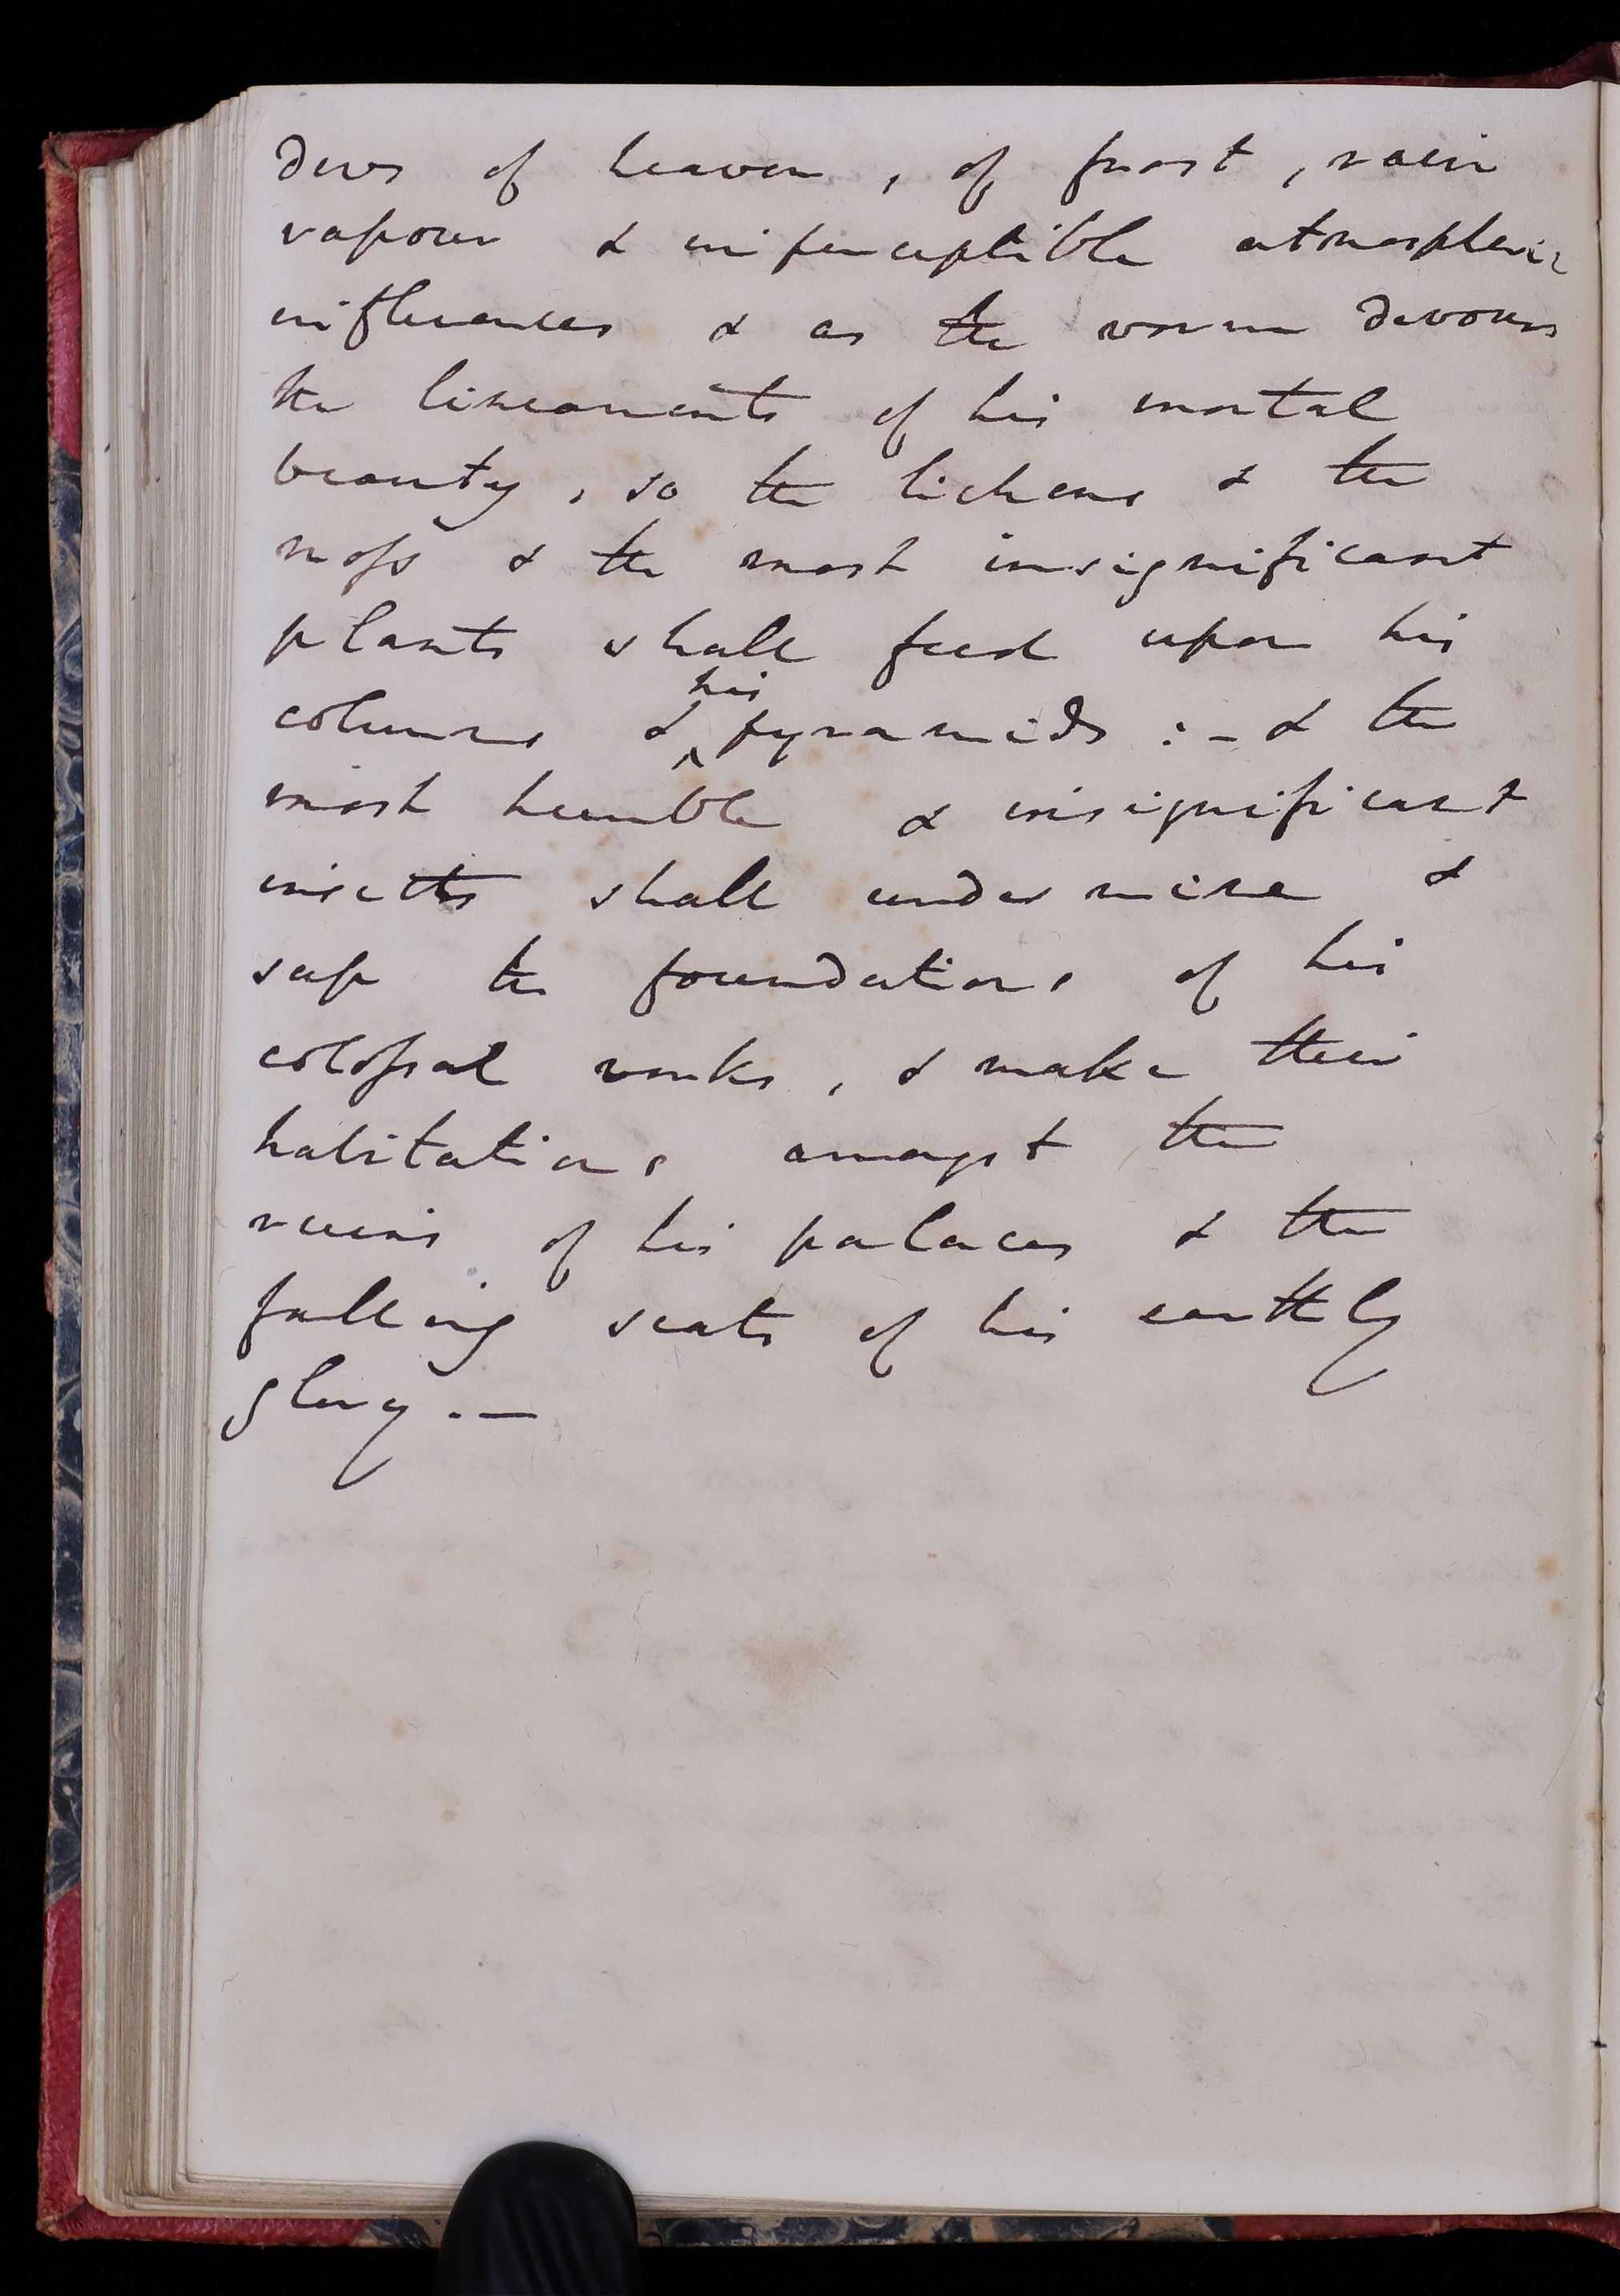 dews of heaven, of frost, rain
vapour & imperceptible atmospheric
influences & as the worm devours
the lineaments of his mortal
beauty, so the lichens & the
moss & the most insignificant
plants shall feed upon his
columns & his pyramids :- & the
most humble & insignificant
insects shall undermine &
sap the foundations of his
colossal works, & make their
habitations amongst the
ruins of his palaces & the
falling seats of his earthly
glory.—